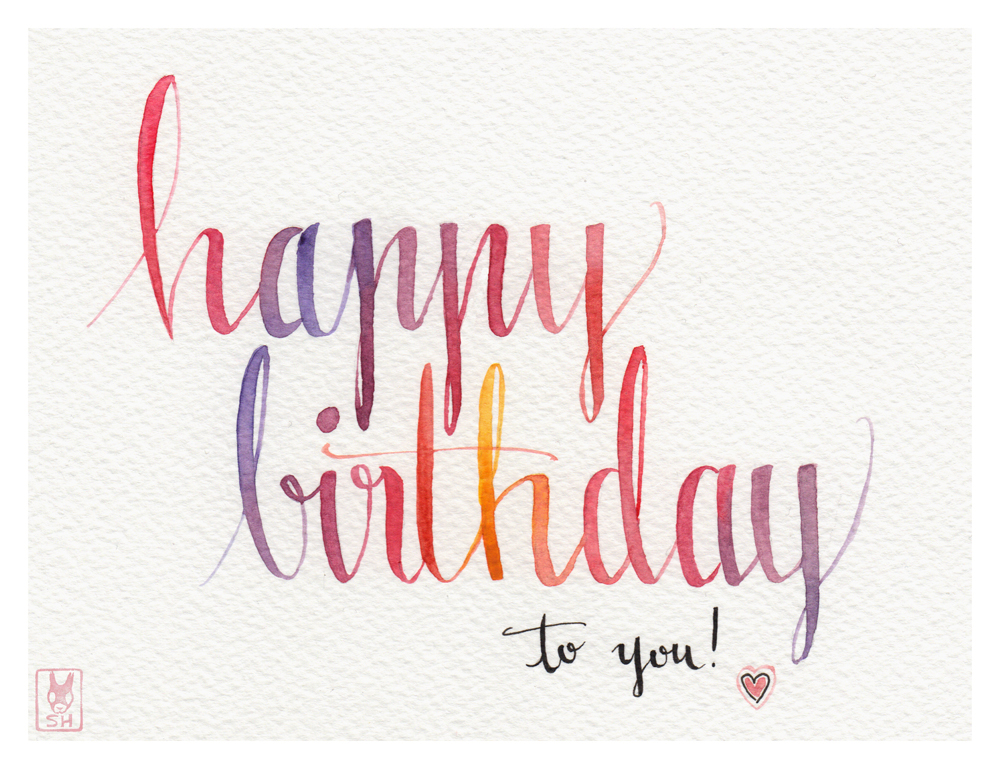 happy
birthday
to you!
SH